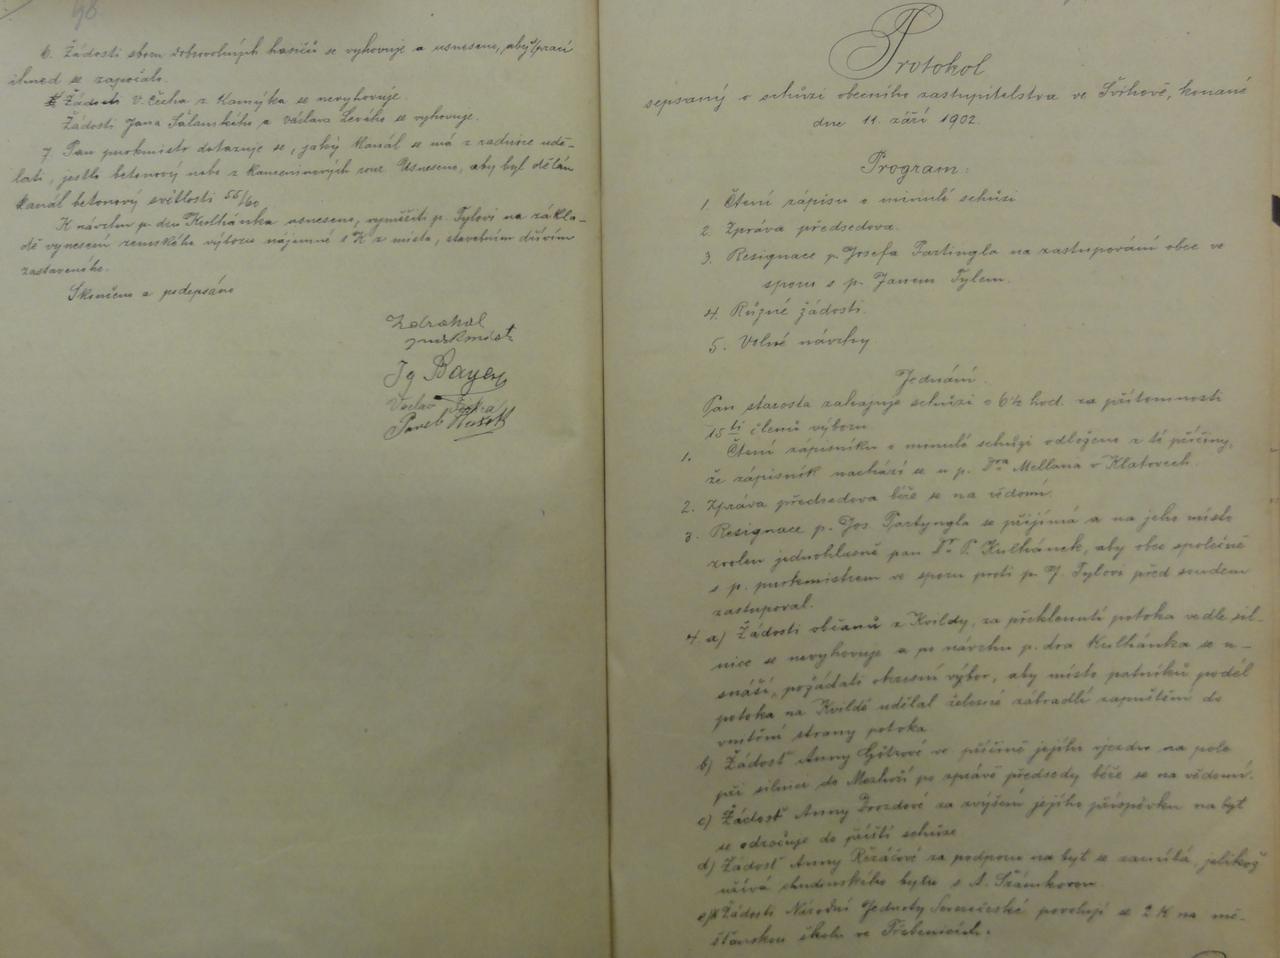 6. Žádosti sboru dobrovolných hasičů se vyhovuje a usneseno, aby s prací
ihned se započalo.
Žádosti V. Čecha z Kamýka se nevyhovuje.
Žádosti Jana Šálanského a Václava Levého se vyhovuje.
7. Pan purkmistr dotazuje se, jaký kanál se má z radnice udě-
lati, jestli betonový nebo z kameninových rour. Usneseno, aby byl dělán
kanál betonový světlosti 55/60
K návrhu p. dra Kulhánka usneseno, vyměřiti p. Tylovi na zákla-
dě vynesení zemského výboru nájemné 1 K z místa, stavebním dřívím
zastaveného.
Skončeno a podepsáno
purkmistr
Ig Bayer
Václav
Pavel
Protokol
sepsaný o schůzi obecního zastupitelstva ve Švihově, konané
dne 11. září 1902.
Program:
1. Čtení zápisu o minulé schůzi
2. Zpráva předsedova.
3. Resignace p. Josefa Partingla na zastupování obce ve
sporu s p. Janem Tylem.
4. Různé žádosti.
5. Volné návrhy
Jednání.
Pan starosta zahajuje schůzi o 6½ hod. za přítomnosti
15ti členů výboru
1. Čtení zápisníku o minulé schůzi odloženo z té příčiny,
že zápisník nachází se u p. Dra Mellana v Klatovech.
2. Zpráva předsedova béře se na vědomí.
3. Resignace p. Jos. Partyngla se přijímá a na jeho místo
zvolen jednohlasně pan Dr. P. Kulhánek, aby obec společně
s p. purkmistrem ve sporu proti p. J. Tylovi před soudem
zastupoval.
4. a) Žádosti občanů z Kvildy, za překlenutí potoka vedle sil-
nice se nevyhovuje a po návrhu p. dra Kulhánka se u-
snáší, požádati okresní výbor, aby místo patníků podél
potoka na Kvildě udělal železné zábradlí zapuštění do
vnitřní strany potoka
b) Žádost Anny Götzové ve příčině jejího vjezdu na pole
při silnici do Mezhoří po zprávě předsedy béře se na vědomí.
c) Žádost Anny Drozdové za zvýšení jejího příspěvku na byt
se odročuje do příští schůze
d) Žádost Anny Řezáčové za podporu na byt se zamítá, jelikož
užívá studenského bytu s A. Šrámkovou
e) Žádosti Národní Jednoty Severočeské povolují se 2 K na mě-
šťanskou školu ve Třebenicích.